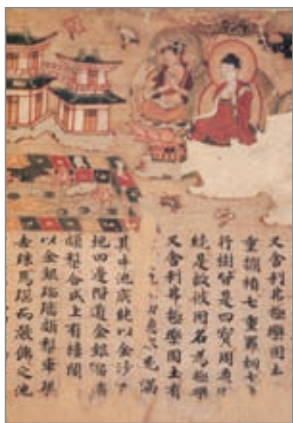 又舍利弗極樂國土
重欄楯七重羅網七
行樹皆是四寶周匝
繞是故彼國名為極樂
又舍利弗極樂國土有
充滿
其中池底純以金沙
地四邊階道金銀瑠
頗梨合成上有樓閣
以金銀瑠璃頗梨車磲
赤珠馬瑙而嚴飾之池